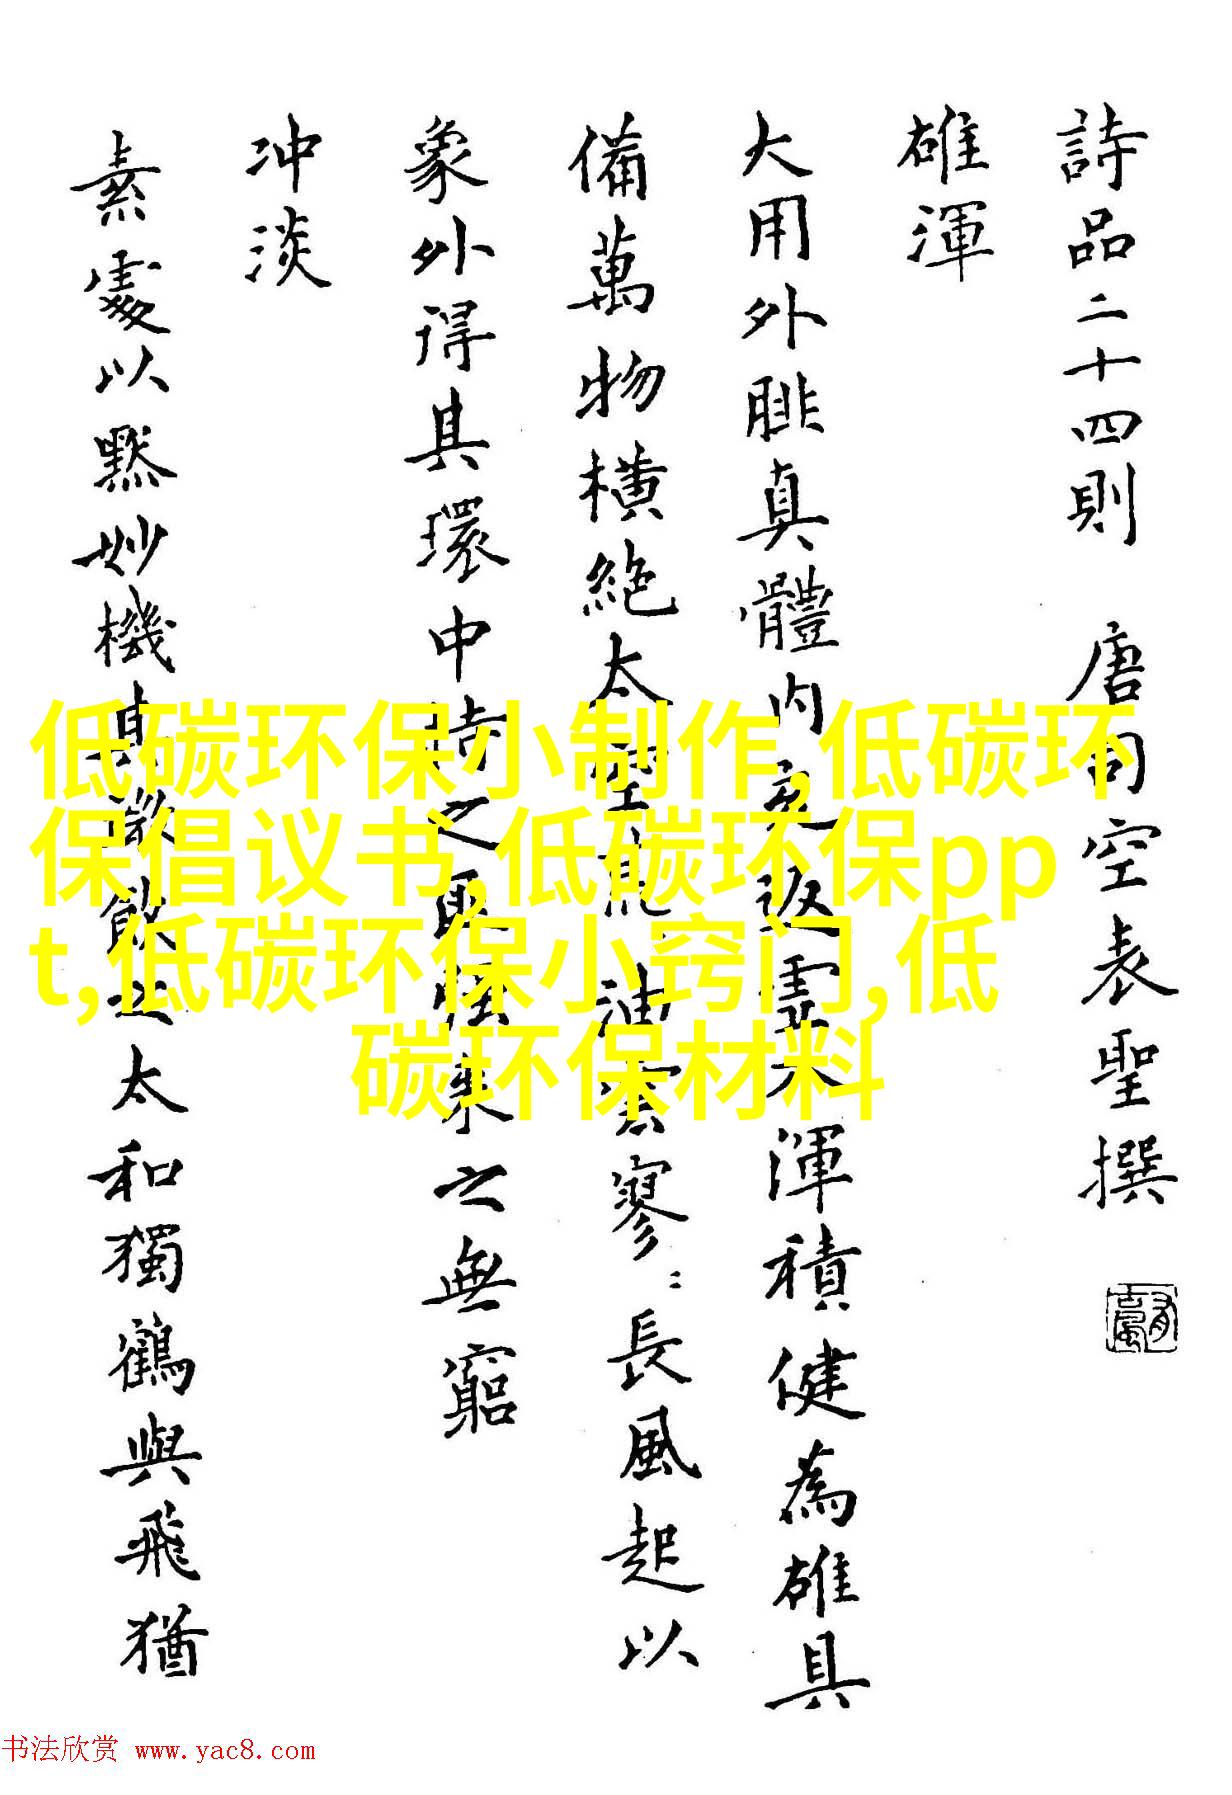 詩品二十四則 唐司空表聖撰
雄渾
大用外腓真體内充返虛入渾積健為雄具
備萬物橫絕太空荒〻油雲寥〻長風起以
象外得其環中持之匪強來之無窮
冲淡
素處以默妙機其微飲之太和獨鶴與飛猶
低碳环保小制作,低碳环
保倡议书,低碳环保pp
t,低碳环保小窍门,低
碳环保材料
书法欣赏 www.yac8.com